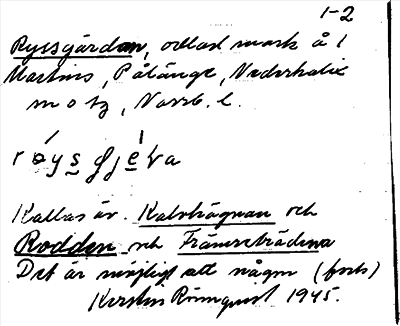 1-2
Ryssgärdan, odlad mark å 1
Martins, Pålänge, Nederkalix
sn o tg, Norrb. l.
Kallas äv. Kalvhägnan och
Rodden och Främreträderna
Det är möjligt att någon (forts)
Kerstin Rönnqvist 1945.